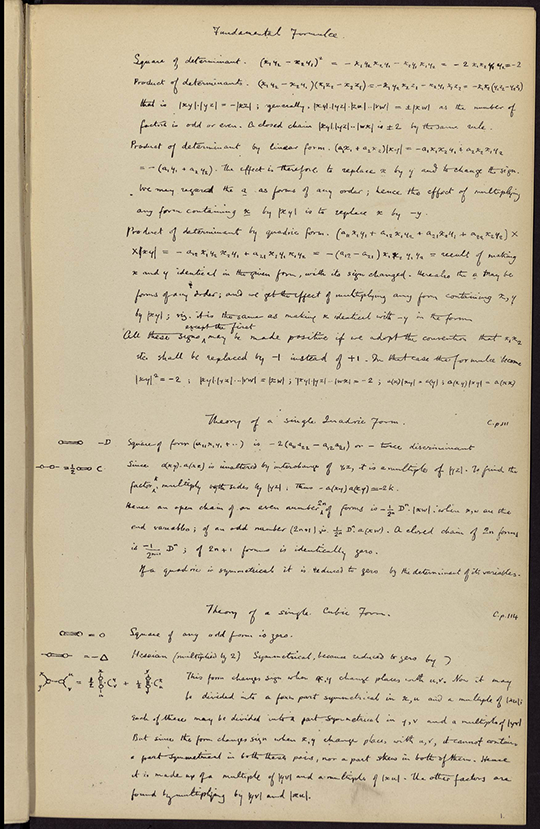 Fundamental Formulae.
Square of determinant. (x₁y₂ − x₂y₁)² = − x₁y₂x₂y₁ − x₂y₁x₁y₂ = − 2 x₁x₂y₁y₂ = −2
Product of determinants. (x₁y₂ − x₂y₁)(y₁z₂ − y₂z₁) =
that is |xy|·|yz| = −|xz| ; generally, |xy|·|yz|·|zu|···|vw| = ±|xw| as the number of
factors is odd or even. A closed chain |xy|·|yz|···|wx| is ±2 by the same rule.
Product of determinant by linear form. (a₁x₁ + a₂x₂)|xy| = −a₁x₁x₂y₁ + a₂x₂x₁y₂
= −(a₁y₁ + a₂y₂). The effect is therefore to replace x by y and to change the sign.
We may regard the a as forms of any order; hence the effect of multiplying
any form containing x by |xy| is to replace x by −y.
Product of determinant by quadric form. (a₁₁x₁y₁ + a₁₂x₁y₂ + a₂₁x₂y₁ + a₂₂x₂y₂) ×
×|xy| = − a₁₂x₁y₂x₂y₁ + a₂₁x₂y₁x₁y₂ = −(a₁₂ − a₂₁)x₁x₂y₁y₂ = result of making
x and y identical in the given form, with its sign changed. Here also the a may be
forms of any order; and we get the effect of multiplying any form containing x, y
by |xy|; viz. it is the same as making x identical with −y in the form
except the first
All these signs may be made positive if we adopt the convention that x₁x₂
etc. shall be replaced by −1 instead of +1. In that case the formulae become
|xy|² = −2 ; |xy|·|yz|···|vw| = |xw| ; |xy|·|yz|···|wx| = −2 ; a(x)|xy| = a(y) ; a(xy)|xy| = a(xx)
Theory of a single Quadric Form. C.p.111
−D Square of form (a₁₁x₁y₁ + ··) is −2(a₁₁a₂₂ − a₁₂a₂₁) or − twice discriminant
= ½ C Since a(xy)·a(xz) is unaltered by interchange of y, z, it is a multiple of |yz|. To find the
factor k, multiply both sides by |yz|; thus −a(xy)a(xy) = −2k.
Hence an open chain of an even number 2n of forms is Dⁿ·|xw|; where x, w are the
end variables; of an odd number (2n+1) is Dⁿ·a(xw). A closed chain of 2n forms
is Dⁿ; of 2n+1 forms is identically zero.
If a quadric is symmetrical it is reduced to zero by the determinant of its variables.
Theory of a single Cubic Form. C.p.114
= 0 Square of any odd form is zero.
= −Δ Hessian (multiplied by 2) Symmetrical, because reduced to zero by
This form changes sign when x, y change places with u, v. Now it may
be divided into a form part symmetrical in x, u and a multiple of |xu|;
each of these may be divided into a part symmetrical in y, v and a multiple of |yv|
But since the form changes sign when x, y change places with u, v, it cannot contain
a part symmetrical in both these pairs, nor a part skew in both of them. Hence
it is made up of a multiple of |yv| and a multiple of |xu|. The other factors are
found by multiplying by |yv| and |xu|.